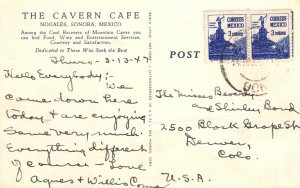 THE CAVERN CAFE
NOGALES, SONORA, MEXICO
Among the Cool Recesses of Mountain Caves you
can find Food, Wine and Entertainment Services,
Courtesy and Satisfaction.
Dedicated to Those Who Seek the Best
Thurs - 3-13-47
Hello Everybody; - We
came down here
today & are enjoying
same very much.
Everything different
of course - Love
Agnes & Willis
POST
CORREOS
MEXICO
CORREOS
MEXICO
The Misses Beverly
and Shirley Bond
2500 Block Grape St
Denver,
Colo.
U.S.A.